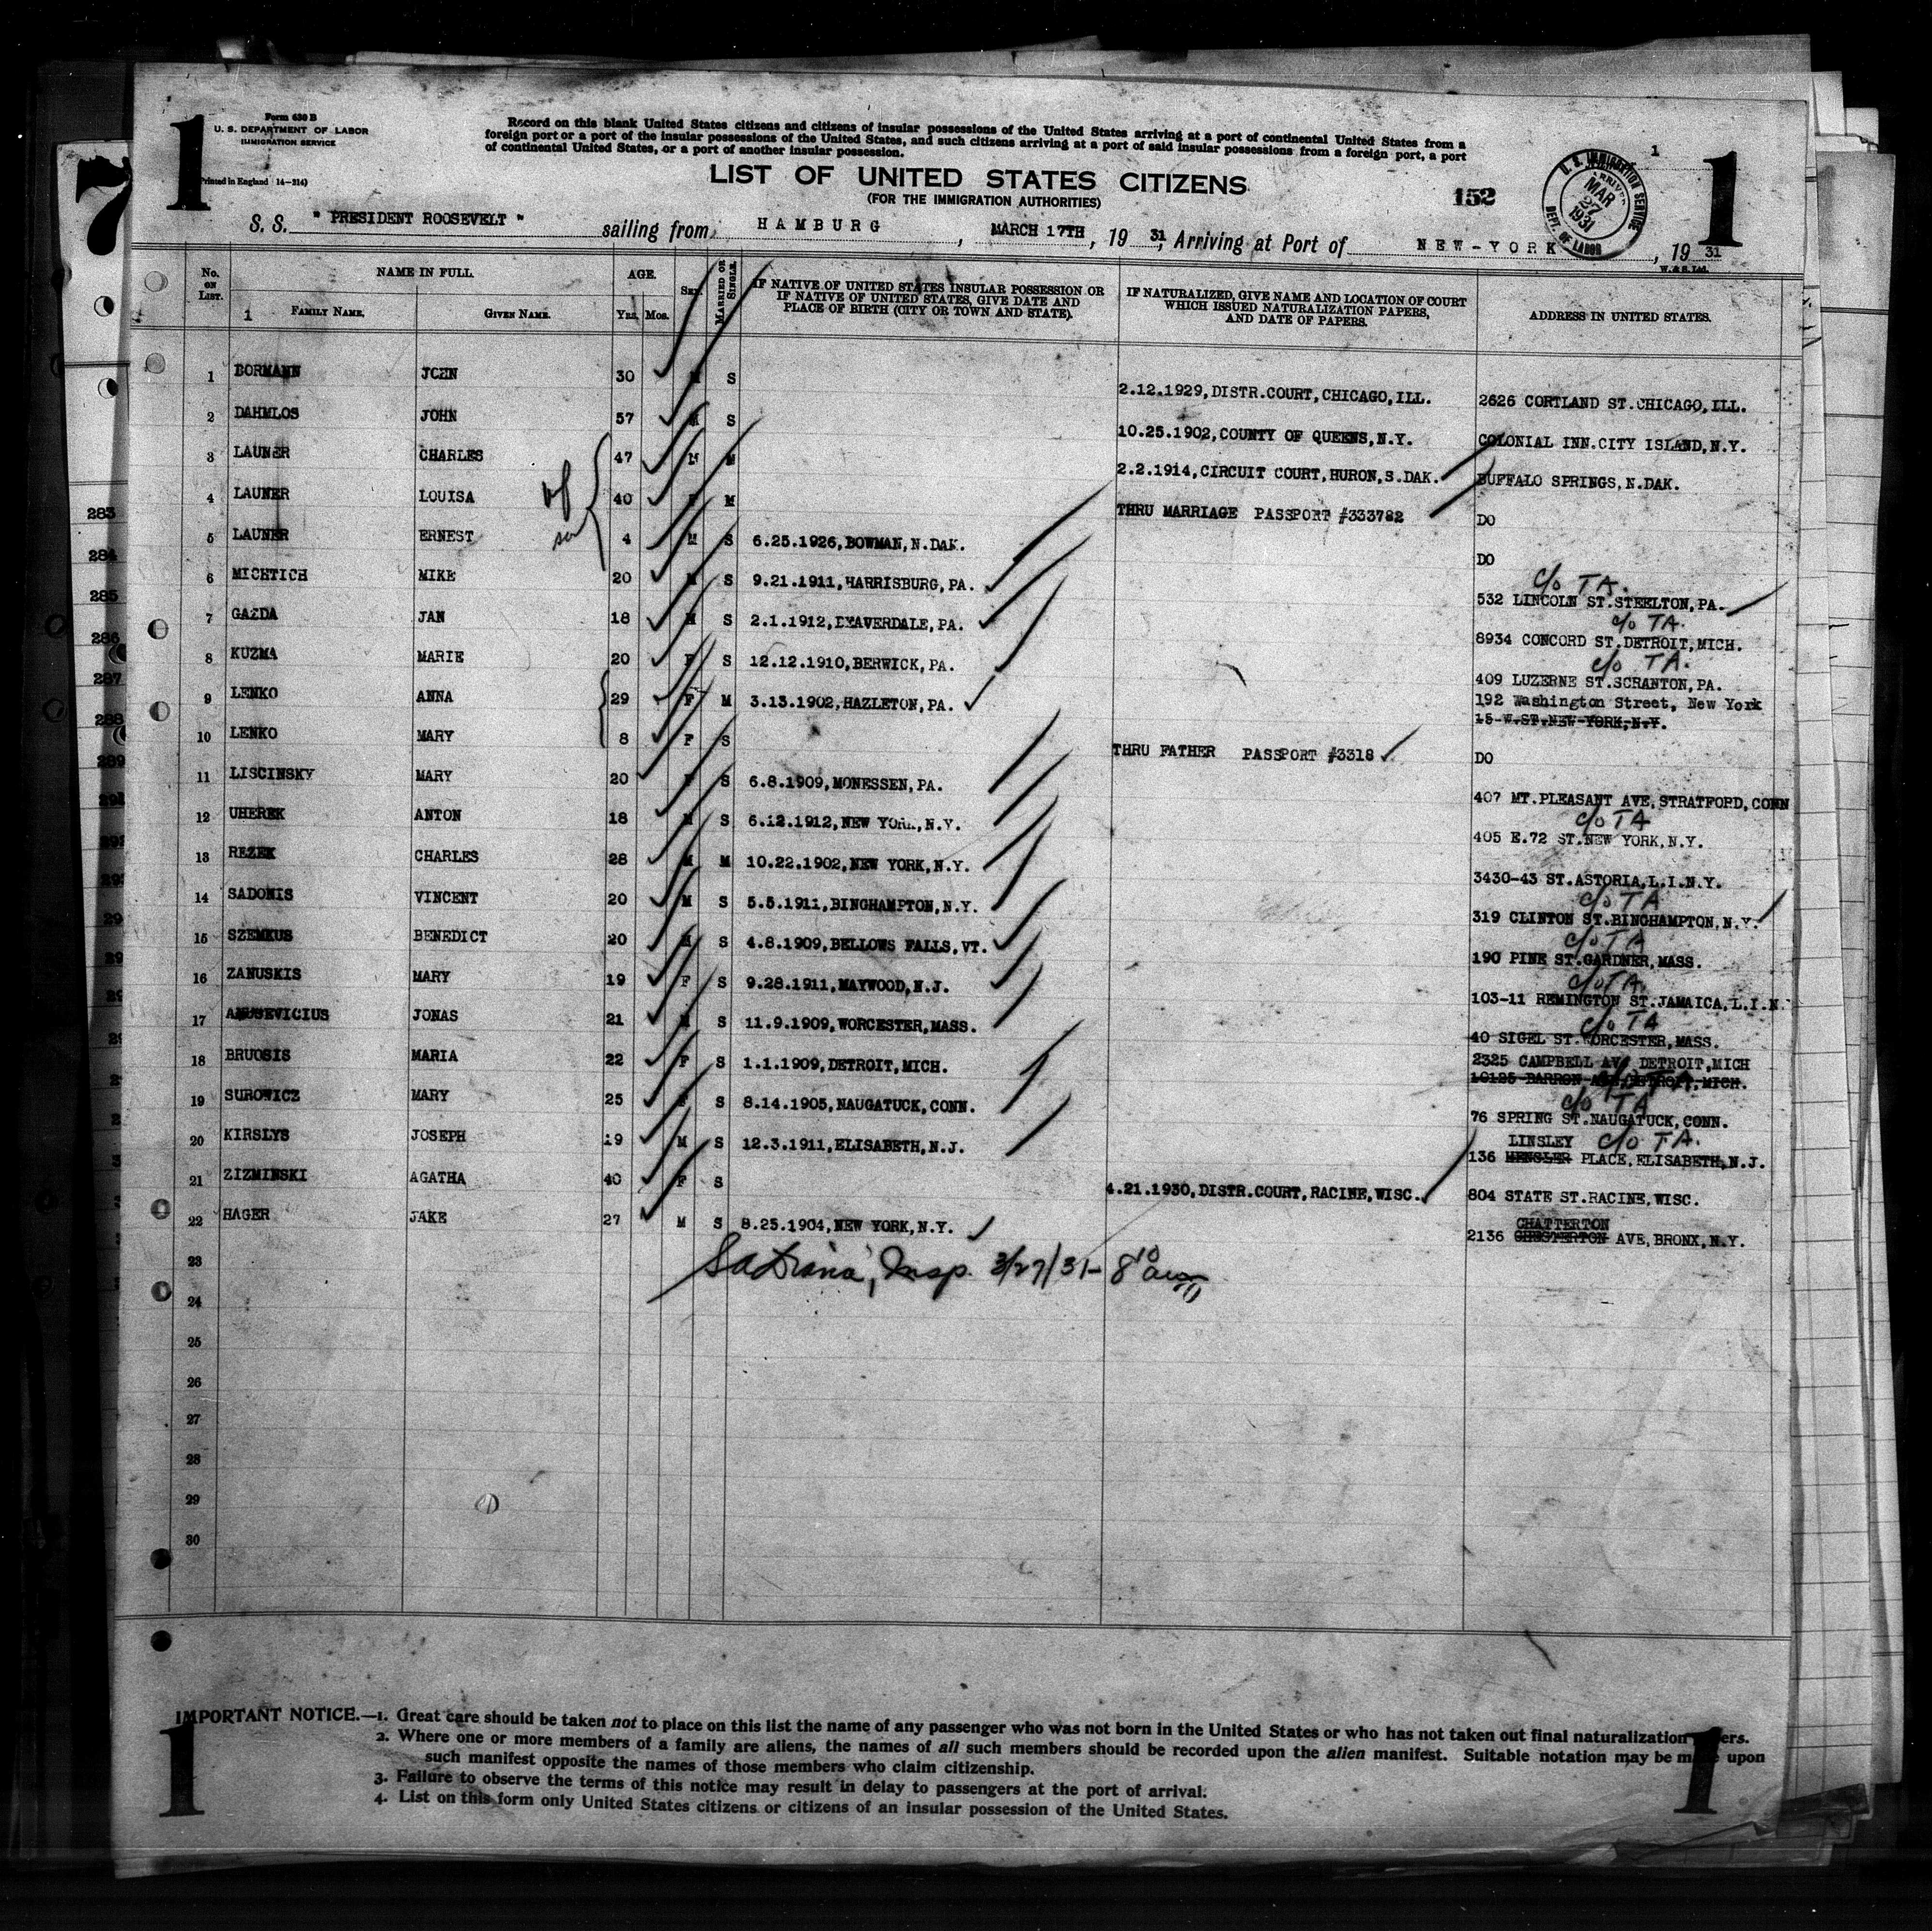 Form 630 B
U. S. DEPARTMENT OF LABOR
IMMIGRATION SERVICE
Printed in England 14—214)
1
Record on this blank United States citizens and citizens of insular possessions of the United States arriving at a port of continental United States from a
foreign port or a port of the insular possessions of the United States, and such citizens arriving at a port of said insular possessions from a foreign port, a port
of continental United States, or a port of another insular possession.
LIST OF UNITED STATES CITIZENS
(FOR THE IMMIGRATION AUTHORITIES)
152
1
1
U. S. IMMIGRATION SERVICE
ARRIVED
MAR
27
1931
DEPT. OF LABOR
7
S. S. " PRESIDENT ROOSEVELT " sailing from HAMBURG, MARCH 17TH, 19 31, Arriving at Port of NEW-YORK, 19 31
W. & S. Ltd.
No. ON LIST. NAME IN FULL. AGE. SEX. MARRIED OR SINGLE. IF NATIVE OF UNITED STATES INSULAR POSSESSION OR IF NATIVE OF UNITED STATES, GIVE DATE AND PLACE OF BIRTH (CITY OR TOWN AND STATE). IF NATURALIZED, GIVE NAME AND LOCATION OF COURT WHICH ISSUED NATURALIZATION PAPERS, AND DATE OF PAPERS. ADDRESS IN UNITED STATES.
1 FAMILY NAME. GIVEN NAME. Yrs. Mos.
1 BORMANN JOHN 30 M S 2.12.1929, DISTR.COURT, CHICAGO, ILL. 2626 CORTLAND ST.CHICAGO, ILL.
2 DAHMLOS JOHN 57 M S 10.25.1902, COUNTY OF QUEENS, N.Y. COLONIAL INN.CITY ISLAND, N.Y.
3 LAUNER CHARLES 47 M M 2.2.1914, CIRCUIT COURT, HURON, S.DAK. BUFFALO SPRINGS, N.DAK.
4 LAUNER LOUISA 40 F M THRU MARRIAGE PASSPORT #333782 DO
5 LAUNER ERNEST 4 M S 6.25.1926, BOWMAN, N.DAK. DO
6 MICHTICH MIKE 20 M S 9.21.1911, HARRISBURG, PA. c/o TA. 532 LINCOLN ST.STEELTON, PA.
7 GAZDA JAN 18 M S 2.1.1912, BEAVERDALE, PA. c/o TA. 8934 CONCORD ST.DETROIT, MICH.
8 KUZMA MARIE 20 F S 12.12.1910, BERWICK, PA. c/o TA. 409 LUZERNE ST.SCRANTON, PA.
9 LENKO ANNA 29 F M 3.13.1902, HAZLETON, PA. 192 Washington Street, New York
15-W.ST.NEW-YORK, N.Y.
10 LENKO MARY 8 F S THRU FATHER PASSPORT #3318 DO
11 LISCINSKY MARY 20 F S 6.8.1909, MONESSEN, PA. 407 MT.PLEASANT AVE, STRATFORD, CONN
12 UHEREK ANTON 18 M S 6.12.1912, NEW YORK, N.Y. c/o TA 405 E.72 ST.NEW YORK, N.Y.
13 REZEK CHARLES 28 M M 10.22.1902, NEW YORK, N.Y. 3430-43 ST.ASTORIA, L.I.N.Y.
14 SADONIS VINCENT 20 M S 5.5.1911, BINGHAMPTON, N.Y. c/o TA 319 CLINTON ST.BINGHAMPTON, N.Y.
15 SZEMKUS BENEDICT 20 M S 4.8.1909, BELLOWS FALLS, VT. c/o TA 190 PINE ST.GARDNER, MASS.
16 ZANUSKIS MARY 19 F S 9.28.1911, MAYWOOD, N.J. c/o TA. 103-11 REMINGTON ST.JAMAICA, L.I.N.
17 ANUSEVICIUS JONAS 21 M S 11.9.1909, WORCESTER, MASS. c/o TA 40 SIGEL ST.WORCESTER, MASS.
18 BRUOSIS MARIA 22 F S 1.1.1909, DETROIT, MICH. 2325 CAMPBELL AV, DETROIT, MICH
10125 BARRON AVE, DETROIT, MICH.
19 SUROWICZ MARY 25 F S 8.14.1905, NAUGATUCK, CONN. c/o TA 76 SPRING ST.NAUGATUCK, CONN.
20 KIRSLYS JOSEPH 19 M S 12.3.1911, ELISABETH, N.J. LINSLEY c/o TA.
136 HENSLER PLACE, ELISABETH, N.J.
21 ZIZMINSKI AGATHA 40 F S 4.21.1930, DISTR.COURT, RACINE, WISC. 804 STATE ST.RACINE, WISC.
22 HAGER JAKE 27 M S 8.25.1904, NEW YORK, N.Y. CHATTERTON
2136 CHESTERTON AVE, BRONX, N.Y.
23 Insp. 3/27/31- 8 10 am
24
25
26
27
28
29
30
283
284
285
286
287
288
289
IMPORTANT NOTICE.—1. Great care should be taken not to place on this list the name of any passenger who was not born in the United States or who has not taken out final naturalization papers.
2. Where one or more members of a family are aliens, the names of all such members should be recorded upon the alien manifest. Suitable notation may be made upon
such manifest opposite the names of those members who claim citizenship.
3. Failure to observe the terms of this notice may result in delay to passengers at the port of arrival.
4. List on this form only United States citizens or citizens of an insular possession of the United States.
1
1